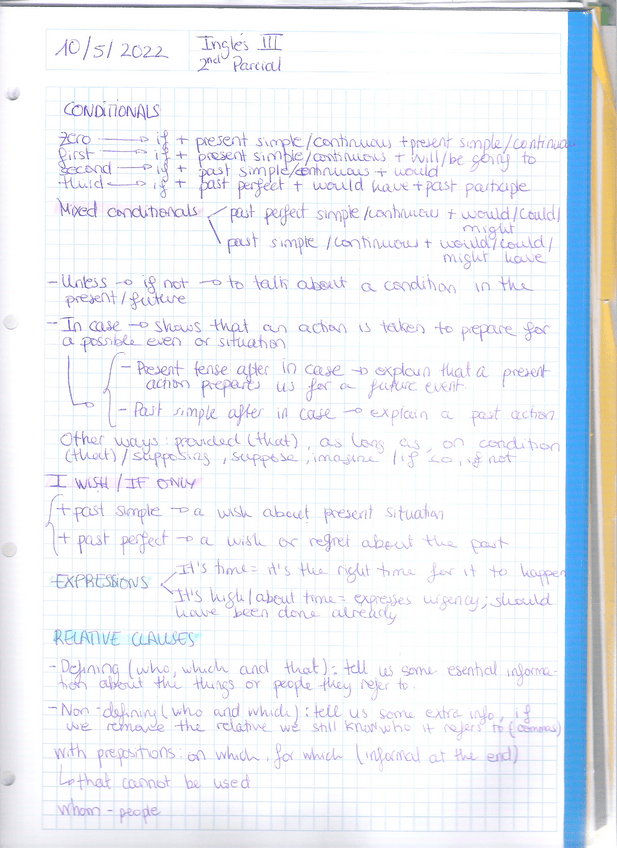 10/5/2022
Inglés III
2nd Parcial
CONDITIONALS
zero → if + present simple/continuous + present simple/continuous
first → if + present simple/continuous + will/be going to
second → if + past simple/continuous + would
third → if + past perfect + would have + past participle
Mixed conditionals past perfect simple/continuous + would/could/
might
past simple/continuous + would/could/
might have
- Unless → if not → to talk about a condition in the
present/future
- In case → shows that an action is taken to prepare for
a possible even or situation
- Present tense after in case → explain that a present
action prepares us for a future event
- Past simple after in case → explain a past action
Other ways: provided (that), as long as, on condition
(that) / supposing, suppose, imagine / if so, if not
I WISH / IF ONLY
+ past simple → a wish about present situation
+ past perfect → a wish or regret about the past
EXPRESSIONS It's time = it's the right time for it to happen
It's high/about time = expresses urgency; should
have been done already
RELATIVE CLAUSES
- Defining (who, which and that): tell us some esential informa-
tion about the things or people they refer to.
- Non-defining (who and which): tell us some extra info, if
we remove the relative we still know who it refers to (commas)
with prepositions: on which, for which (informal at the end)
↳ that cannot be used
whom - people